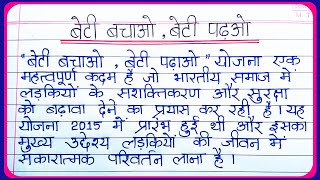 बेटी बचाओ , बेटी पढ़ओ
"बेटी बचाओ , बेटी पढ़ाओ " योजना एक
महत्वपूर्ण कदम है जो भारतीय समाज में
लड़कियों के सशक्तिकरण और सुरक्षा
को बढ़ावा देने का प्रयास कर रही है । यह
योजना 2015 में प्रारंभ हुई थी और इसका
मुख्य उद्देश्य लड़कियों की जीवन में
सकारात्मक परिवर्तन लाना है ।